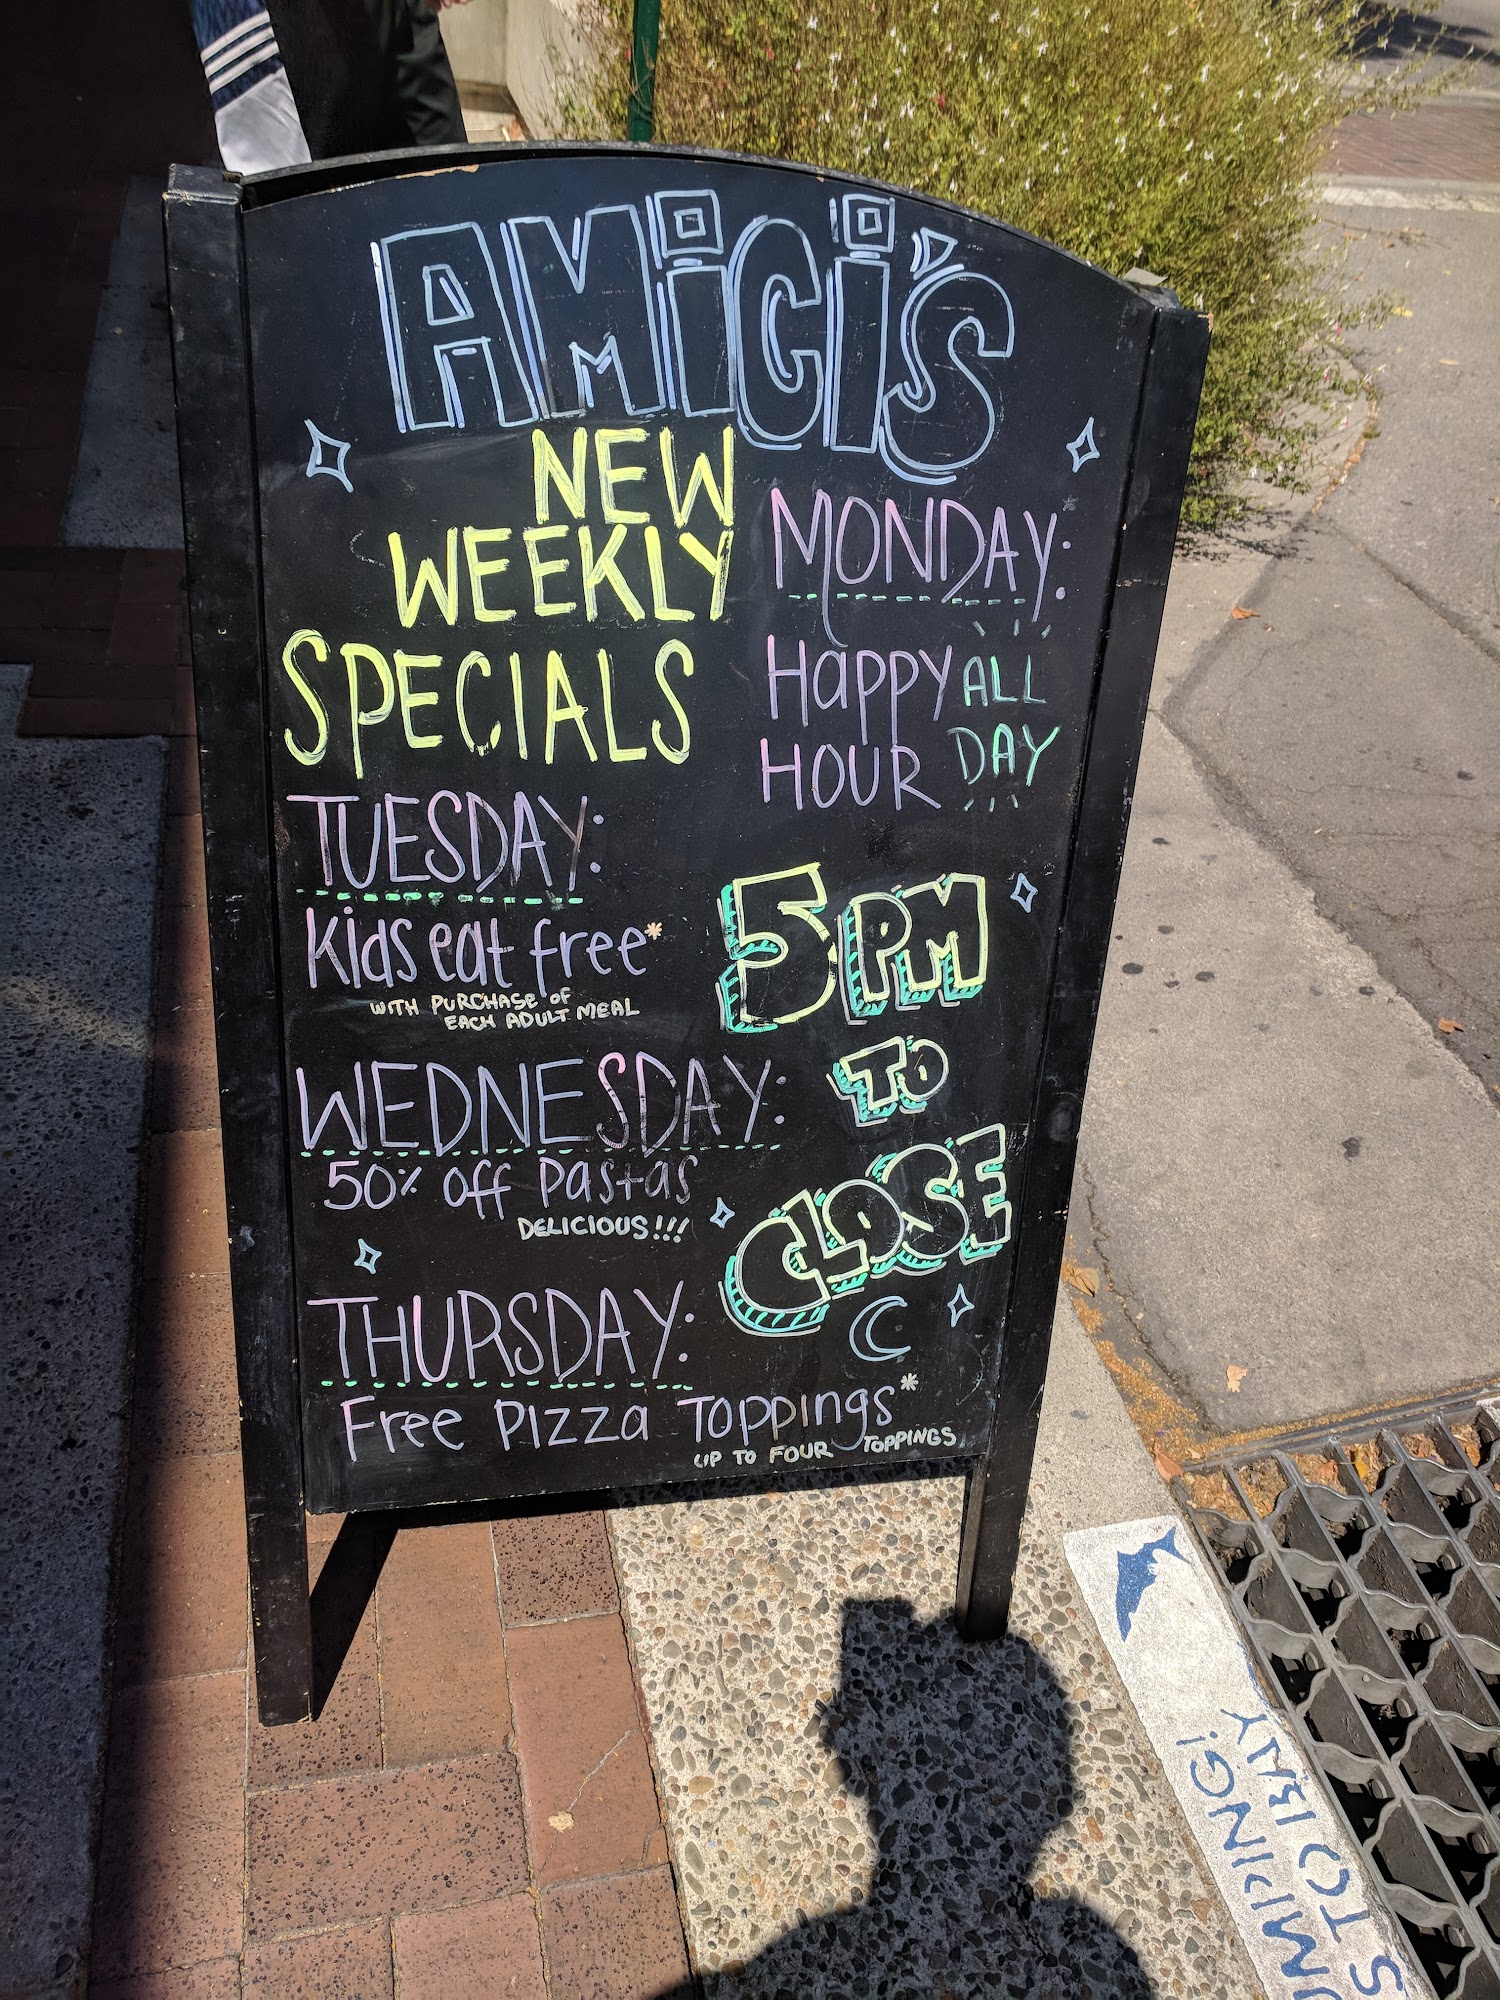 AMiCi'S
NEW
WEEKLY
SPECIALS
MONDAY:
HAPPY ALL
HOUR DAY
TUESDAY:
Kids eat free*
WITH PURCHASE OF
EACH ADULT MEAL
WEDNESDAY:
50% off Pastas
DELICIOUS!!!
THURSDAY:
Free PIZZa TOPPINgs*
UP TO FOUR TOPPINGS
5PM
TO
CLOSE
UMPING!
S TO BAY